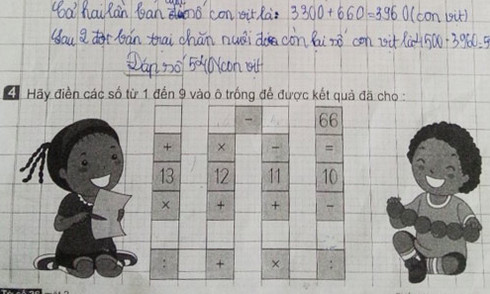 Cả hai lần bán số con vịt là: 3300 + 660 = 3960 (con vịt)
Sau 2 đợt bán trại chăn nuôi còn lại số con vịt là 4500 - 3960 = 5
Đáp số 540 con vịt
4 Hãy điền các số từ 1 đến 9 vào ô trống để được kết quả đã cho :
- 66
+ × - =
13 12 11 10
× + + -
: + × :